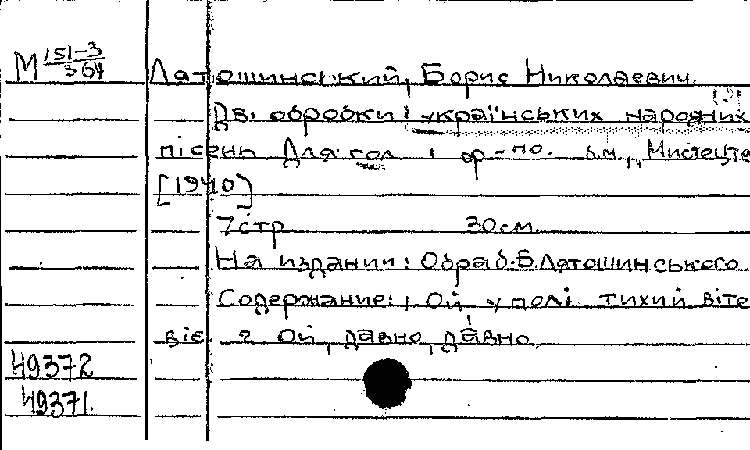 М 151-3/364
Лятошинський, Борис Николаевич.
Дві обробки українських народних
пісень для гол і ф-по. б.м., Мистецтв
[1940]
7стр 30см.
На издании: Обраб. Б. Лятошинського.
Содержание: 1 Ой у полі тихий віте
віє 2 Ой, давно, давно.
49372
49371.